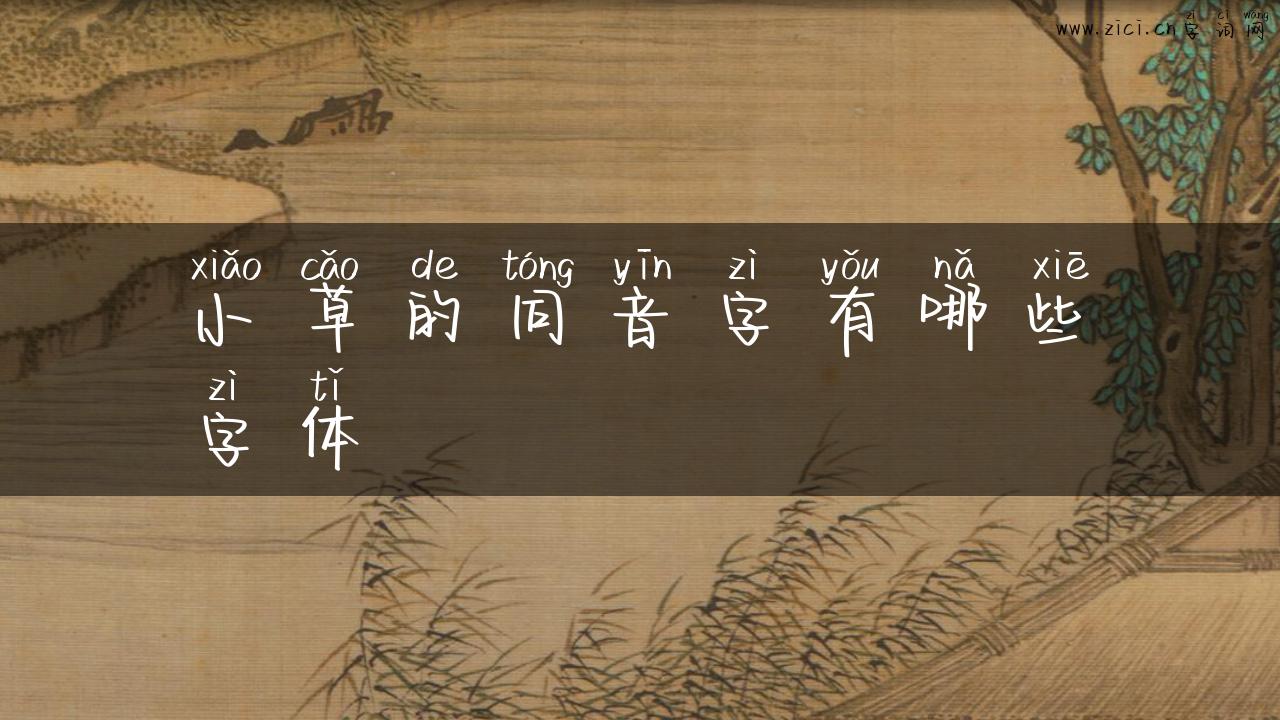 zì cí wǎng
www.zici.cn字词网
xiǎo cǎo de tóng yīn zì yǒu nǎ xiē
小草的同音字有哪些
zì tǐ
字体